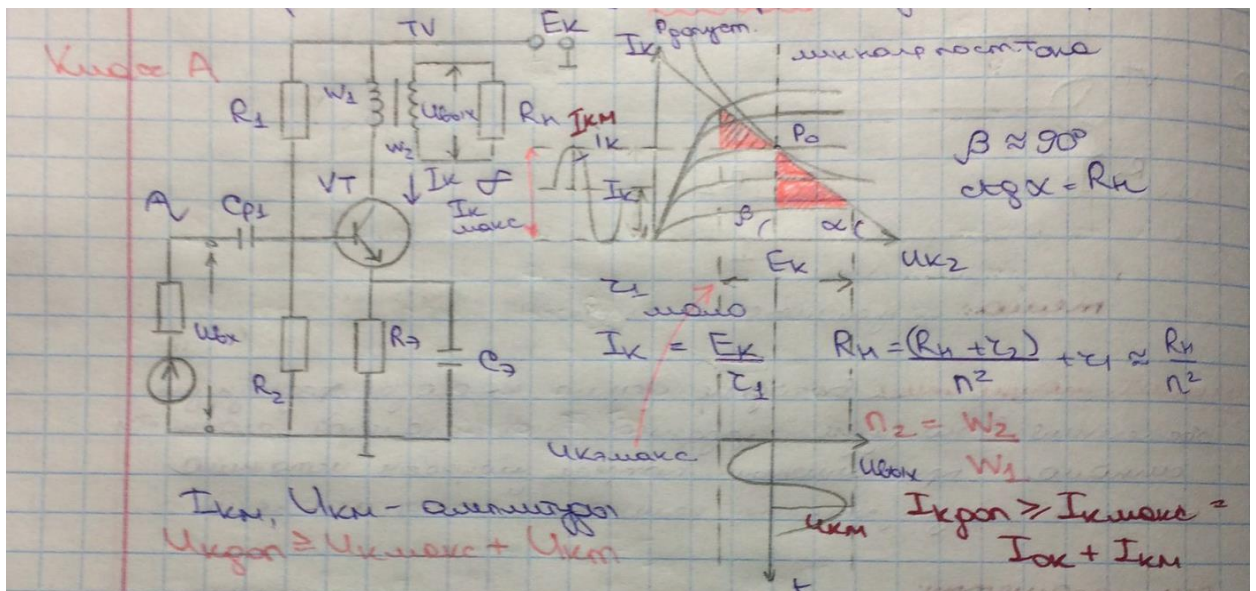 Класс А
TV
Eк
R1
W1
W2
Uвых
Rн
VT
Iк
Iк макс
Cр1
Uвх
R2
Rэ
Cэ
Iк
Pдопуст.
линия пост тока
Iкм
Iк
P0
Iк
β
α
Eк
β ≈ 90°
ctgα = Rн
r1 мало
Iк = Eк / r1
Rн = (Rн + r2) / n² + r1 ≈ Rн / n²
n2 = W2 / W1
Uкэмакс
Uвых
Uкм
t
Iкм, Uкм – амплитуды
Uкдоп ≥ Uкмакс + Uкт
Iкдоп ≥ Iкмакс =
Iок + Iкм